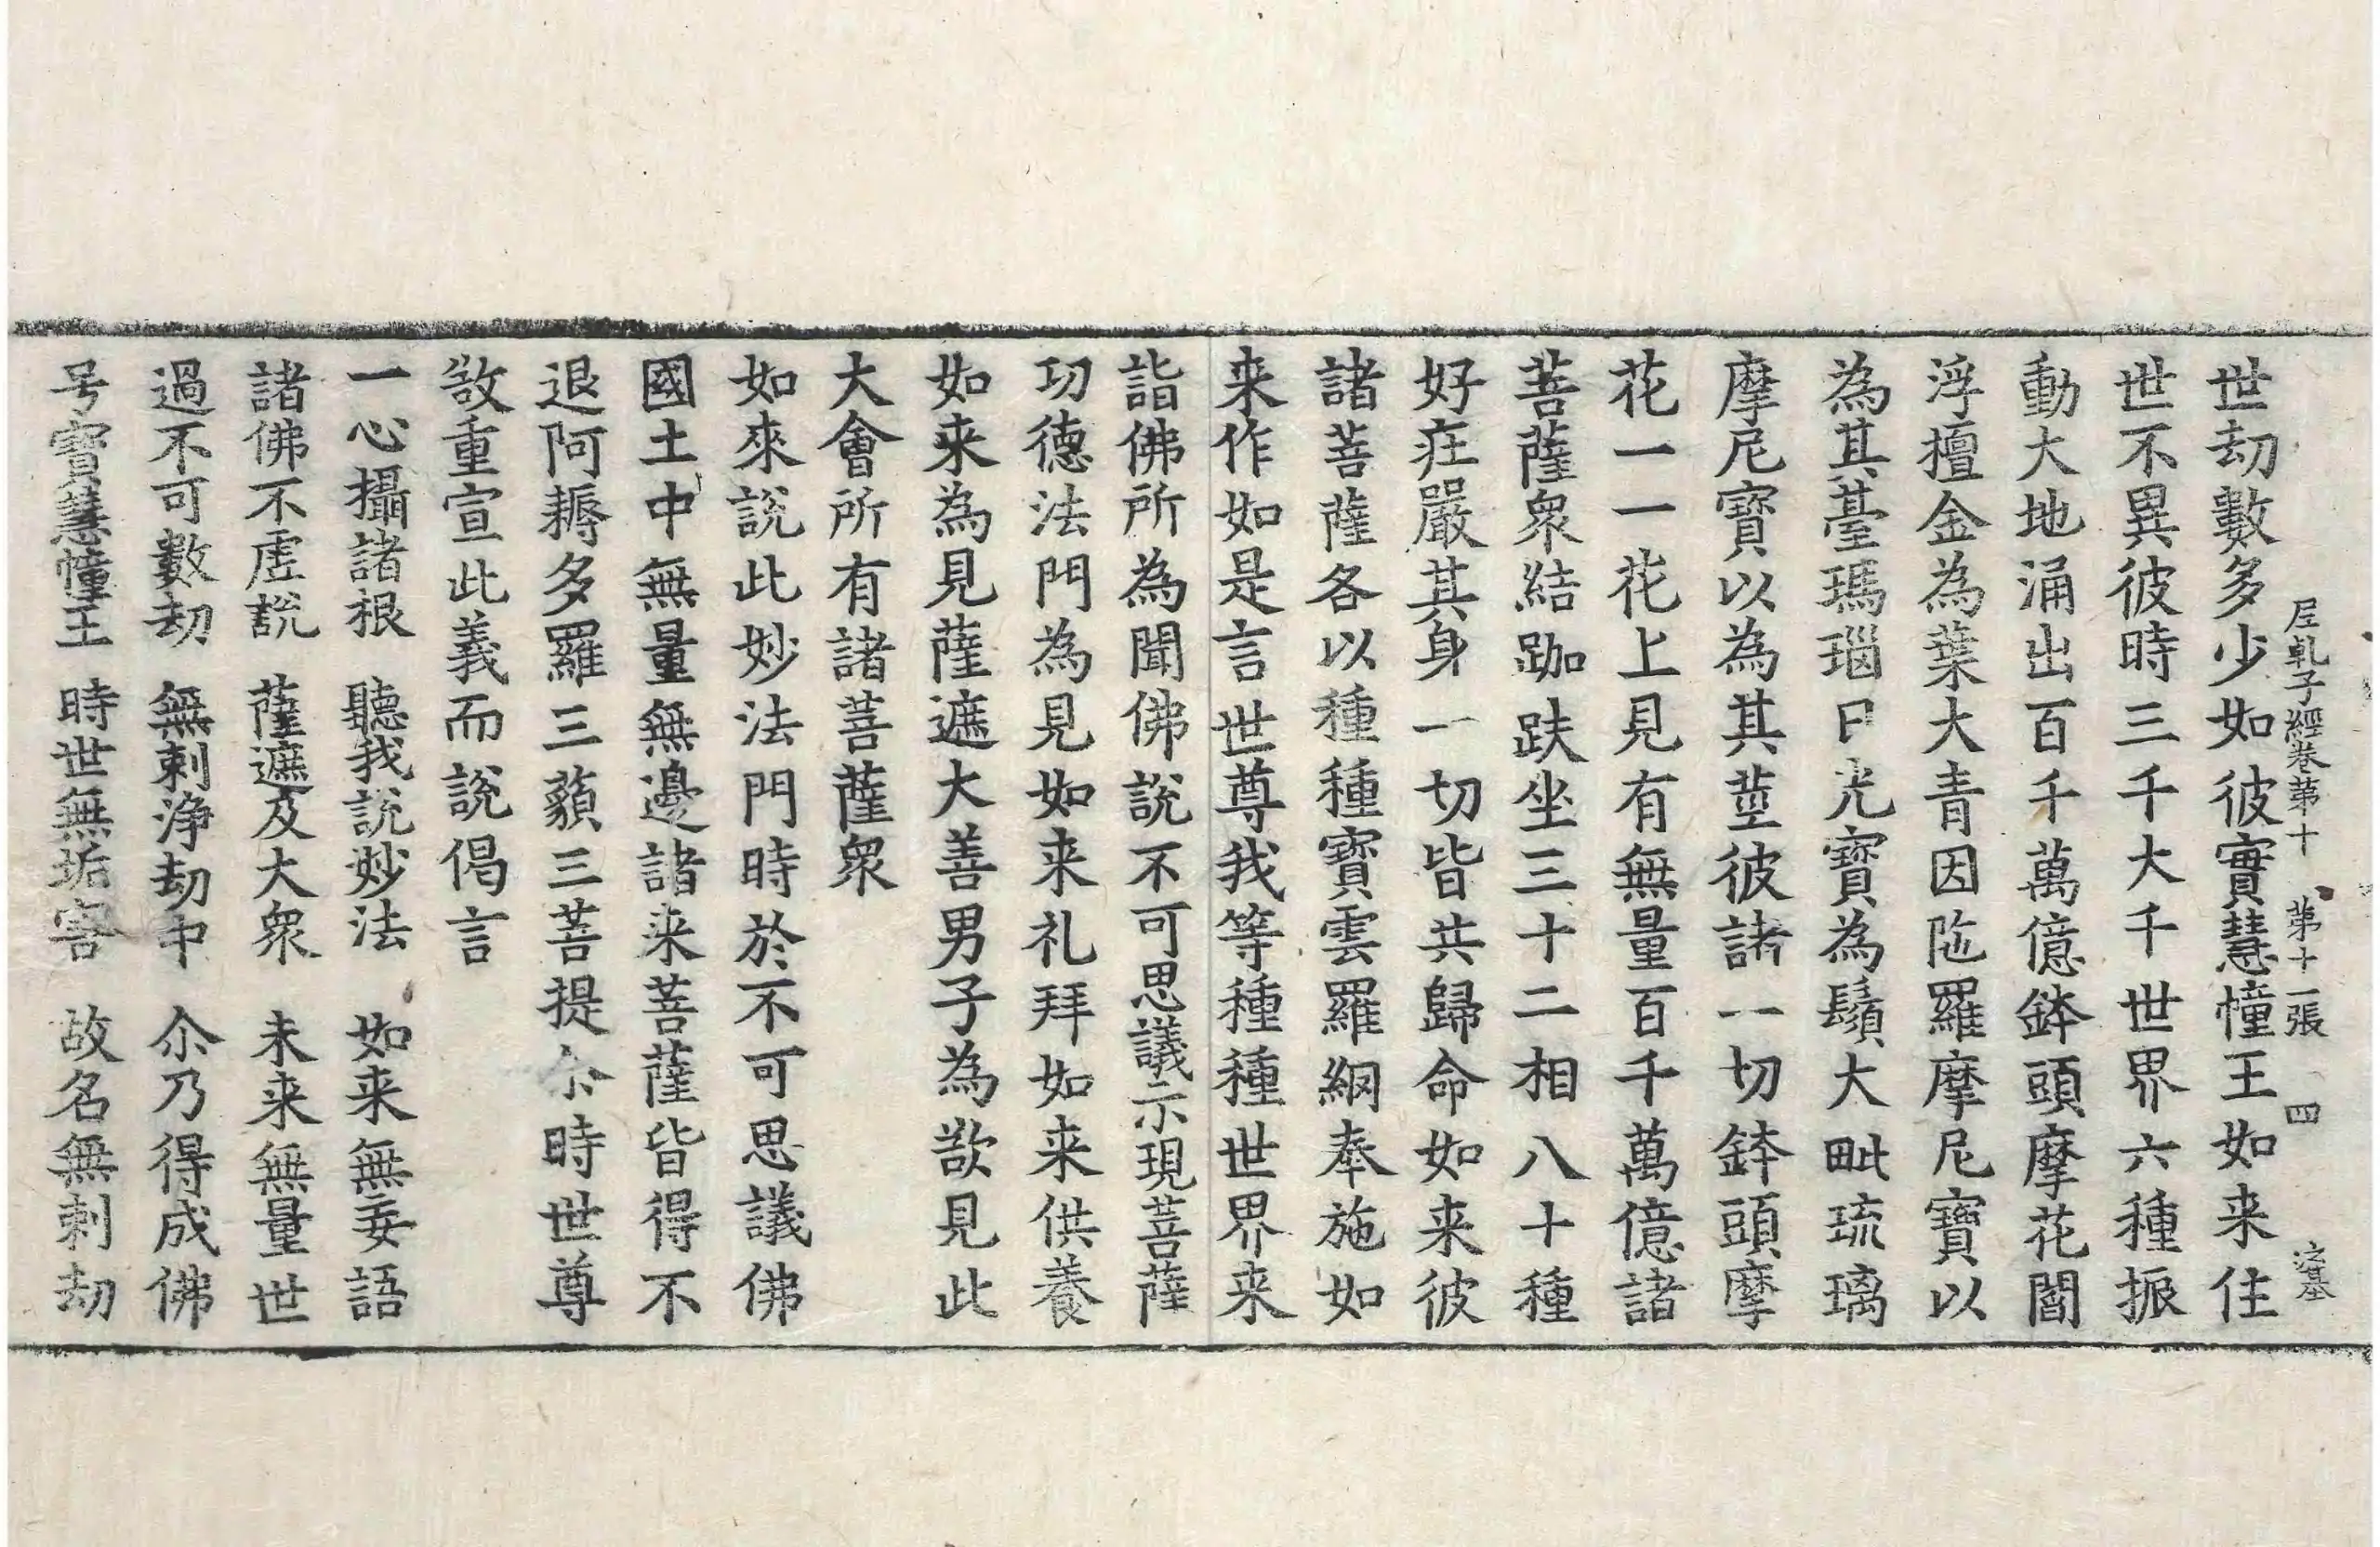 世劫數多少如彼實慧幢王如来住
𡱝軋子經卷第十　第十一張　四
世不異彼時三千大千世界六種振
動大地涌出百千萬億鉢頭摩花閻
浮檀金為葉大青因陁羅摩尼寶以
為其臺瑪瑙日光寶為鬚大毗琉璃
摩尼寶以為其莖彼諸一切鉢頭摩
花一一花上見有無量百千萬億諸
菩薩衆結跏趺坐三十二相八十種
好疘嚴其身一切皆共歸命如来彼
諸菩薩各以種種寶雲羅網奉施如
来作如是言世尊我等種種世界来
詣佛所為聞佛說不可思議示現菩薩
功德法門為見如来礼拜如来供養
如来為見薩遮大善男子為欲見此
大會所有諸菩薩衆
如來說此妙法門時於不可思議佛
國土中無量無邊諸来菩薩皆得不
退阿耨多羅三藐三菩提尒時世尊
欲重宣此義而說偈言
一心攝諸根　聽我說妙法　如来無妄語
諸佛不虛說　薩遮及大衆　未来無量世
過不可數劫　無刺淨劫中　尒乃得成佛
号寶慧幢王　時世無垢害　故名無刺劫